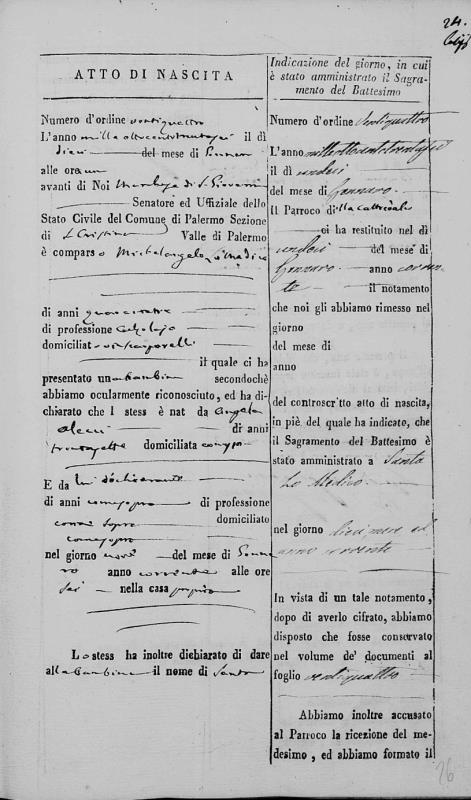 24.
ATTO DI NASCITA
Numero d'ordine ventiquattro
L'anno mille ottocentotrentasei il dì
dieci del mese di Gennaro
alle ore un
avanti di Noi Marchese di S. Giovanni
Senatore ed Uffiziale dello
Stato Civile del Comune di Palermo Sezione
di S. Cristina Valle di Palermo
è comparso Michelangelo Lo Medico
di anni quarantatre
di professione calzolajo
domiciliato
il quale ci ha
presentato una bambina secondochè
abbiamo ocularmente riconosciuto, ed ha di-
chiarato che l stess è nat da Angela
di anni
trentasette domiciliata
E da lui dichiarante
di anni come sopra di professione
come sopra domiciliato
come sopra
nel giorno nove del mese di Genna
ro anno corrente alle ore
sei nella casa propria
Lo stess ha inoltre dichiarato di dare
alla bambina il nome di Santa
Indicazione del giorno, in cui
è stato amministrato il Sagra-
mento del Battesimo
Numero d'ordine Ventiquattro
L'anno milleottocentotrentasei
il dì undeci
del mese di Gennaro
Il Parroco della Cattedrale
ci ha restituito nel dì
undeci del mese di
Gennaro anno corren
te il notamento
che noi gli abbiamo rimesso nel
giorno
del mese di
anno
del controscritto atto di nascita,
in piè del quale ha indicato, che
il Sagramento del Battesimo è
stato amministrato a Santa
Lo Medico
nel giorno dieci mese ed
anno corrente
In vista di un tale notamento,
dopo di averlo cifrato, abbiamo
disposto che fosse conservato
nel volume de' documenti al
foglio ventiquattro
Abbiamo inoltre accusato
al Parroco la ricezione del me-
desimo, ed abbiamo formato il
26